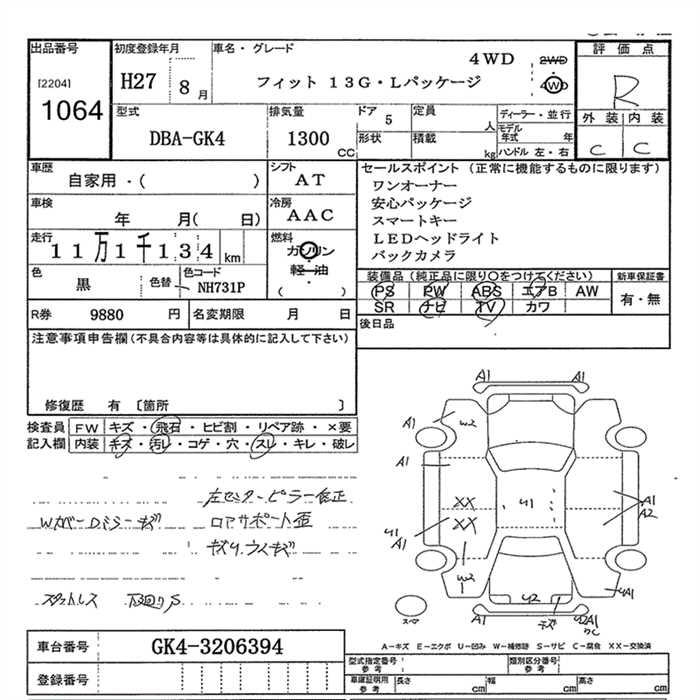 出品番号
[2204]
1064
初度登録年月
H27 8 月
車名・グレード
4WD
フィット 13G・Lパッケージ
2WD
4WD
評価点
R
外装 内装
C C
型式
DBA-GK4
排気量
1300
CC
ドア
5
定員
人
形状
積載
kg
ディーラー・並行
モデル年式 年
ハンドル 左・右
車歴
自家用・( )
シフト
AT
車検
年 月( 日)
冷房
AAC
走行
11万1千134 km
燃料
ガソリン
軽・油
( )
色
黒
色替
色コード
NH731P
R券 9880 円
名変期限 月 日
セールスポイント (正常に機能するものに限ります)
ワンオーナー
安心パッケージ
スマートキー
LEDヘッドライト
バックカメラ
装備品(純正品に限り○をつけてください)
PS PW ABS エアB AW
SR ナビ TV カワ
新車保証書
有・無
後日品
注意事項申告欄(不具合内容等は具体的に記入して下さい)
修復歴 有 〔箇所 〕
検査員記入欄
FW キズ・飛石・ヒビ割・リペア跡・×要
内装 キズ・汚レ・コゲ・穴・スレ・キレ・破レ
左センターピラー修正
Wカバー Dミラーキズ ロアサポート歪
キズ、ウスキズ
スタットレス 下回りS
A1
A1
A1
W2
A1
A1
XX
XX
U1
U1
A1
A1
A2
W2
U2
キズ
U2A1
UA1
スペア
A-キズ E-エクボ U-凹み W-補修跡 S-サビ C-腐食 XX-交換済
車台番号 GK4-3206394
登録番号
型式指定番号 参考
類別区分番号 参考
車庫証明用 参考
長さ cm
幅 cm
高さ cm